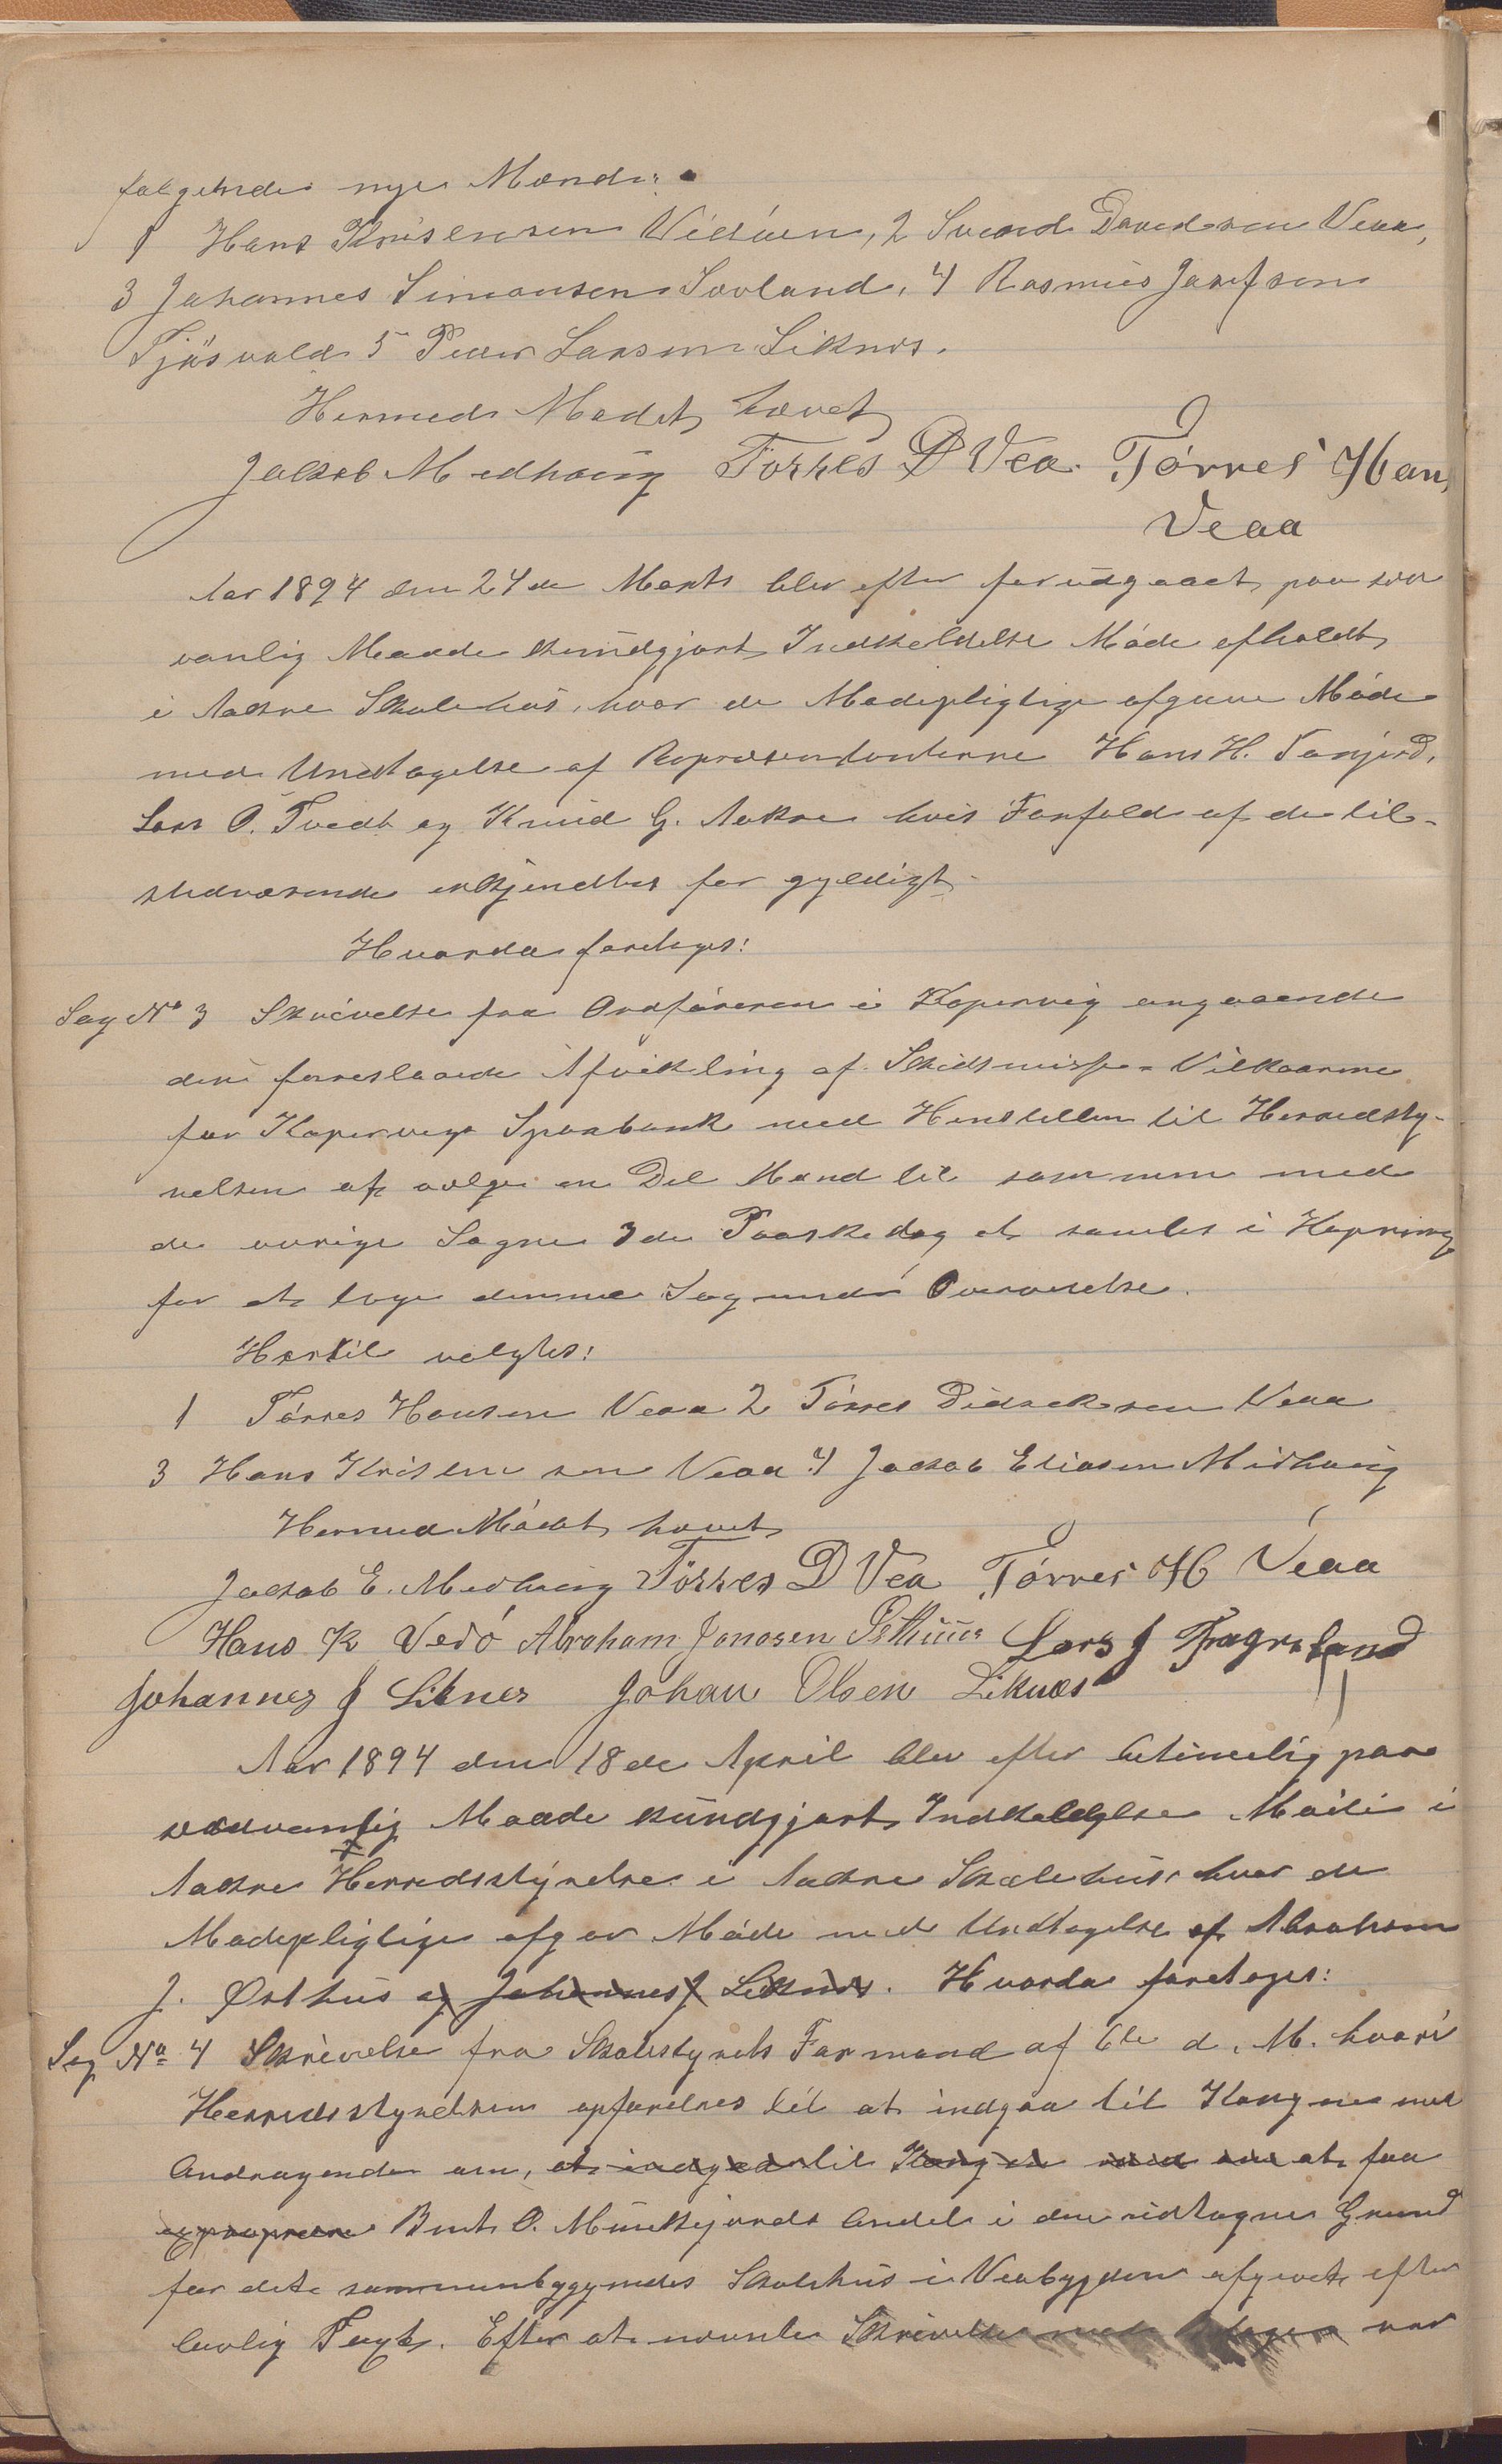 følgende nye Mænd:
1 Hans Kristensen Vedøen, 2 Svend Davidsen Veaa,
3 Johannes Simonsen Sevland, 4 Rasmus Josefsen
Tjøsvold 5 Peder Larsen Liknes.
Hermed Mødet hævet
Jakob Medhaug Tørres D Vea. Tørres Han
Veaa
Aar 1894 den 24de Marts blev efter forudgaaet paa sæd
vanlig Maade kundgjort Indkaldelse Møde afholdt
i Aakre Skolehus, hvor de Mødepligtige afgave Møde
med Undtagelse af Repræsentanterne Hans H.
Lars O. Tvedt og Knud G. Aakre hvis Forfald af de til-
stedværende erkjendtes for gyldigt.
Hvorda foretoges:
Sag No 3 Skrivelse fra Ordføreren i Kopervig angaaende
den foreslaaede Afvikling af Skudsmisse-Vilkaarene
for Kopervigs Sparebank med Henstillen til Herredsty-
relsen at vælge en Del Mænd til sammen med
de øvrige Sogne 3de Paaskedag at samles i Kopervig
for at tage denne Sag under Overveielse.
Hertil valgtes:
1 Tørres Hansen Veaa 2 Tørres Didriksen Veaa
3 Hans Kristensen Veaa 4 Jakob Eliasen Midhaug
Hermed Mødet hævet
Jakob E. Medhaug Tørres D Vea Tørres H Veaa
Hans K Vedø Abraham Jonasen Østhuus Lars J
Johannes J Liknes Johan Olsen Liknes
Aar 1894 den 18de April blev efter betimelig paa
sædvanlig Maade kundgjort Indkaldelse Møde i
Aakre Herredsstyrelse i Aakre Skolehus hvor de
Mødepligtige afgav Møde med Undtagelse af Abraham
J. Østhus og Johannes J Liknes. Hvorda foretoges:
Sag No 4 Skrivelse fra Skolestyrets Formand af 6te d. M. hvori
Herredsstyrelsen opfordres til at indgaa til Kongen med
Andragende om, at indgaa til Kongen med om at faa
expropriere Bent O. Munkejords Andel i den udtagne Grund
for det sammenbyggendes Skolehus i Veabygden afgivet efter
lovlig Taxt. Efter at nævnte Skrivelse med Bilager var